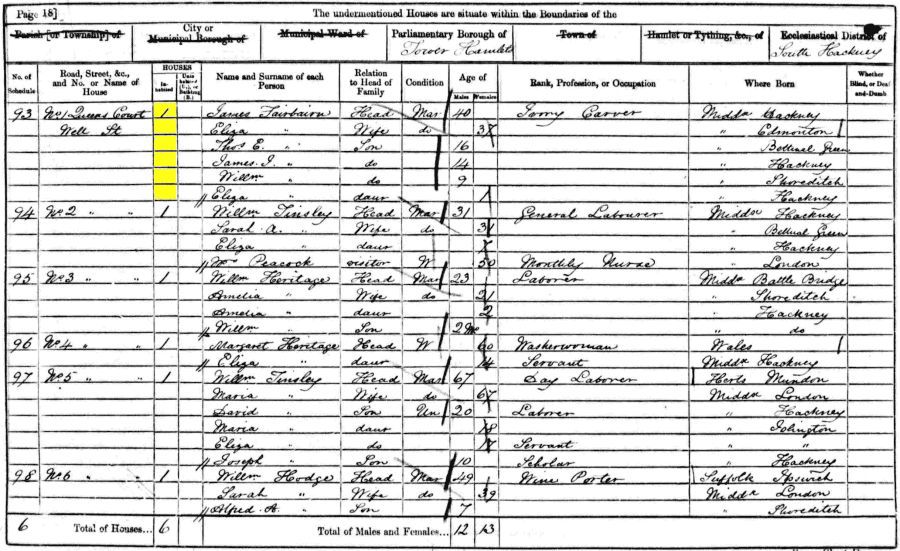 Page 18] The undermentioned Houses are situate within the Boundaries of the
Parish [or Township] of City or Municipal Borough of Municipal Ward of Parliamentary Borough of Tower Hamlets Town of Hamlet or Tything, &c., of Ecclesiastical District of South Hackney
No. of Schedule Road, Street, &c., and No. or Name of House HOUSES In-habited Uninhabited (U.), or Building (B.) Name and Surname of each Person Relation to Head of Family Condition Age of Males Females Rank, Profession, or Occupation Where Born Whether Blind, or Deaf-and-Dumb
93 No 1 Queens Court 1 James Fairbairn Head Mar 40 Ivory Carver Middx Hackney
Well St Eliza " Wife do " Edmonton
Thos E. " Son 16 " Bethnal Green
James J. " do 14 " Hackney
Willm " do 9 " Shoreditch
Eliza " daur 1 " Hackney
94 No 2 " " 1 Willm Tinsley Head Mar 31 General Labourer Middx Hackney
Sarah A. " Wife do 31 " Bethnal Green
Eliza " daur " Hackney
Peacock visitor W 50 Monthly Nurse " London
95 No 3 " " 1 Willm Heritage Head Mar 23 Laborer Middx Battle Bridge
Amelia " Wife do 21 " Shoreditch
Amelia " daur 2 " Hackney
Willm " Son 2 Mo " do
96 No 4 " " 1 Margaret Heritage Head W 60 Washerwoman Wales
Eliza " daur 14 Servant Middx Hackney
97 No 5 " " 1 Willm Tinsley Head Mar 67 Day Laborer Herts Mundon
Maria " Wife do 67 Middx London
David " Son Un 20 Laborer " Hackney
Maria " daur 18 " Islington
Eliza " do 17 Servant " "
Joseph " Son 10 Scholar " Hackney
98 No 6 " 1 Willm Hodge Head Mar 49 Wine Porter Suffolk Ipswich
Sarah " Wife do 39 Middx London
Alfred A. " Son 7 " Shoreditch
6 Total of Houses... 6 Total of Males and Females... 12 13